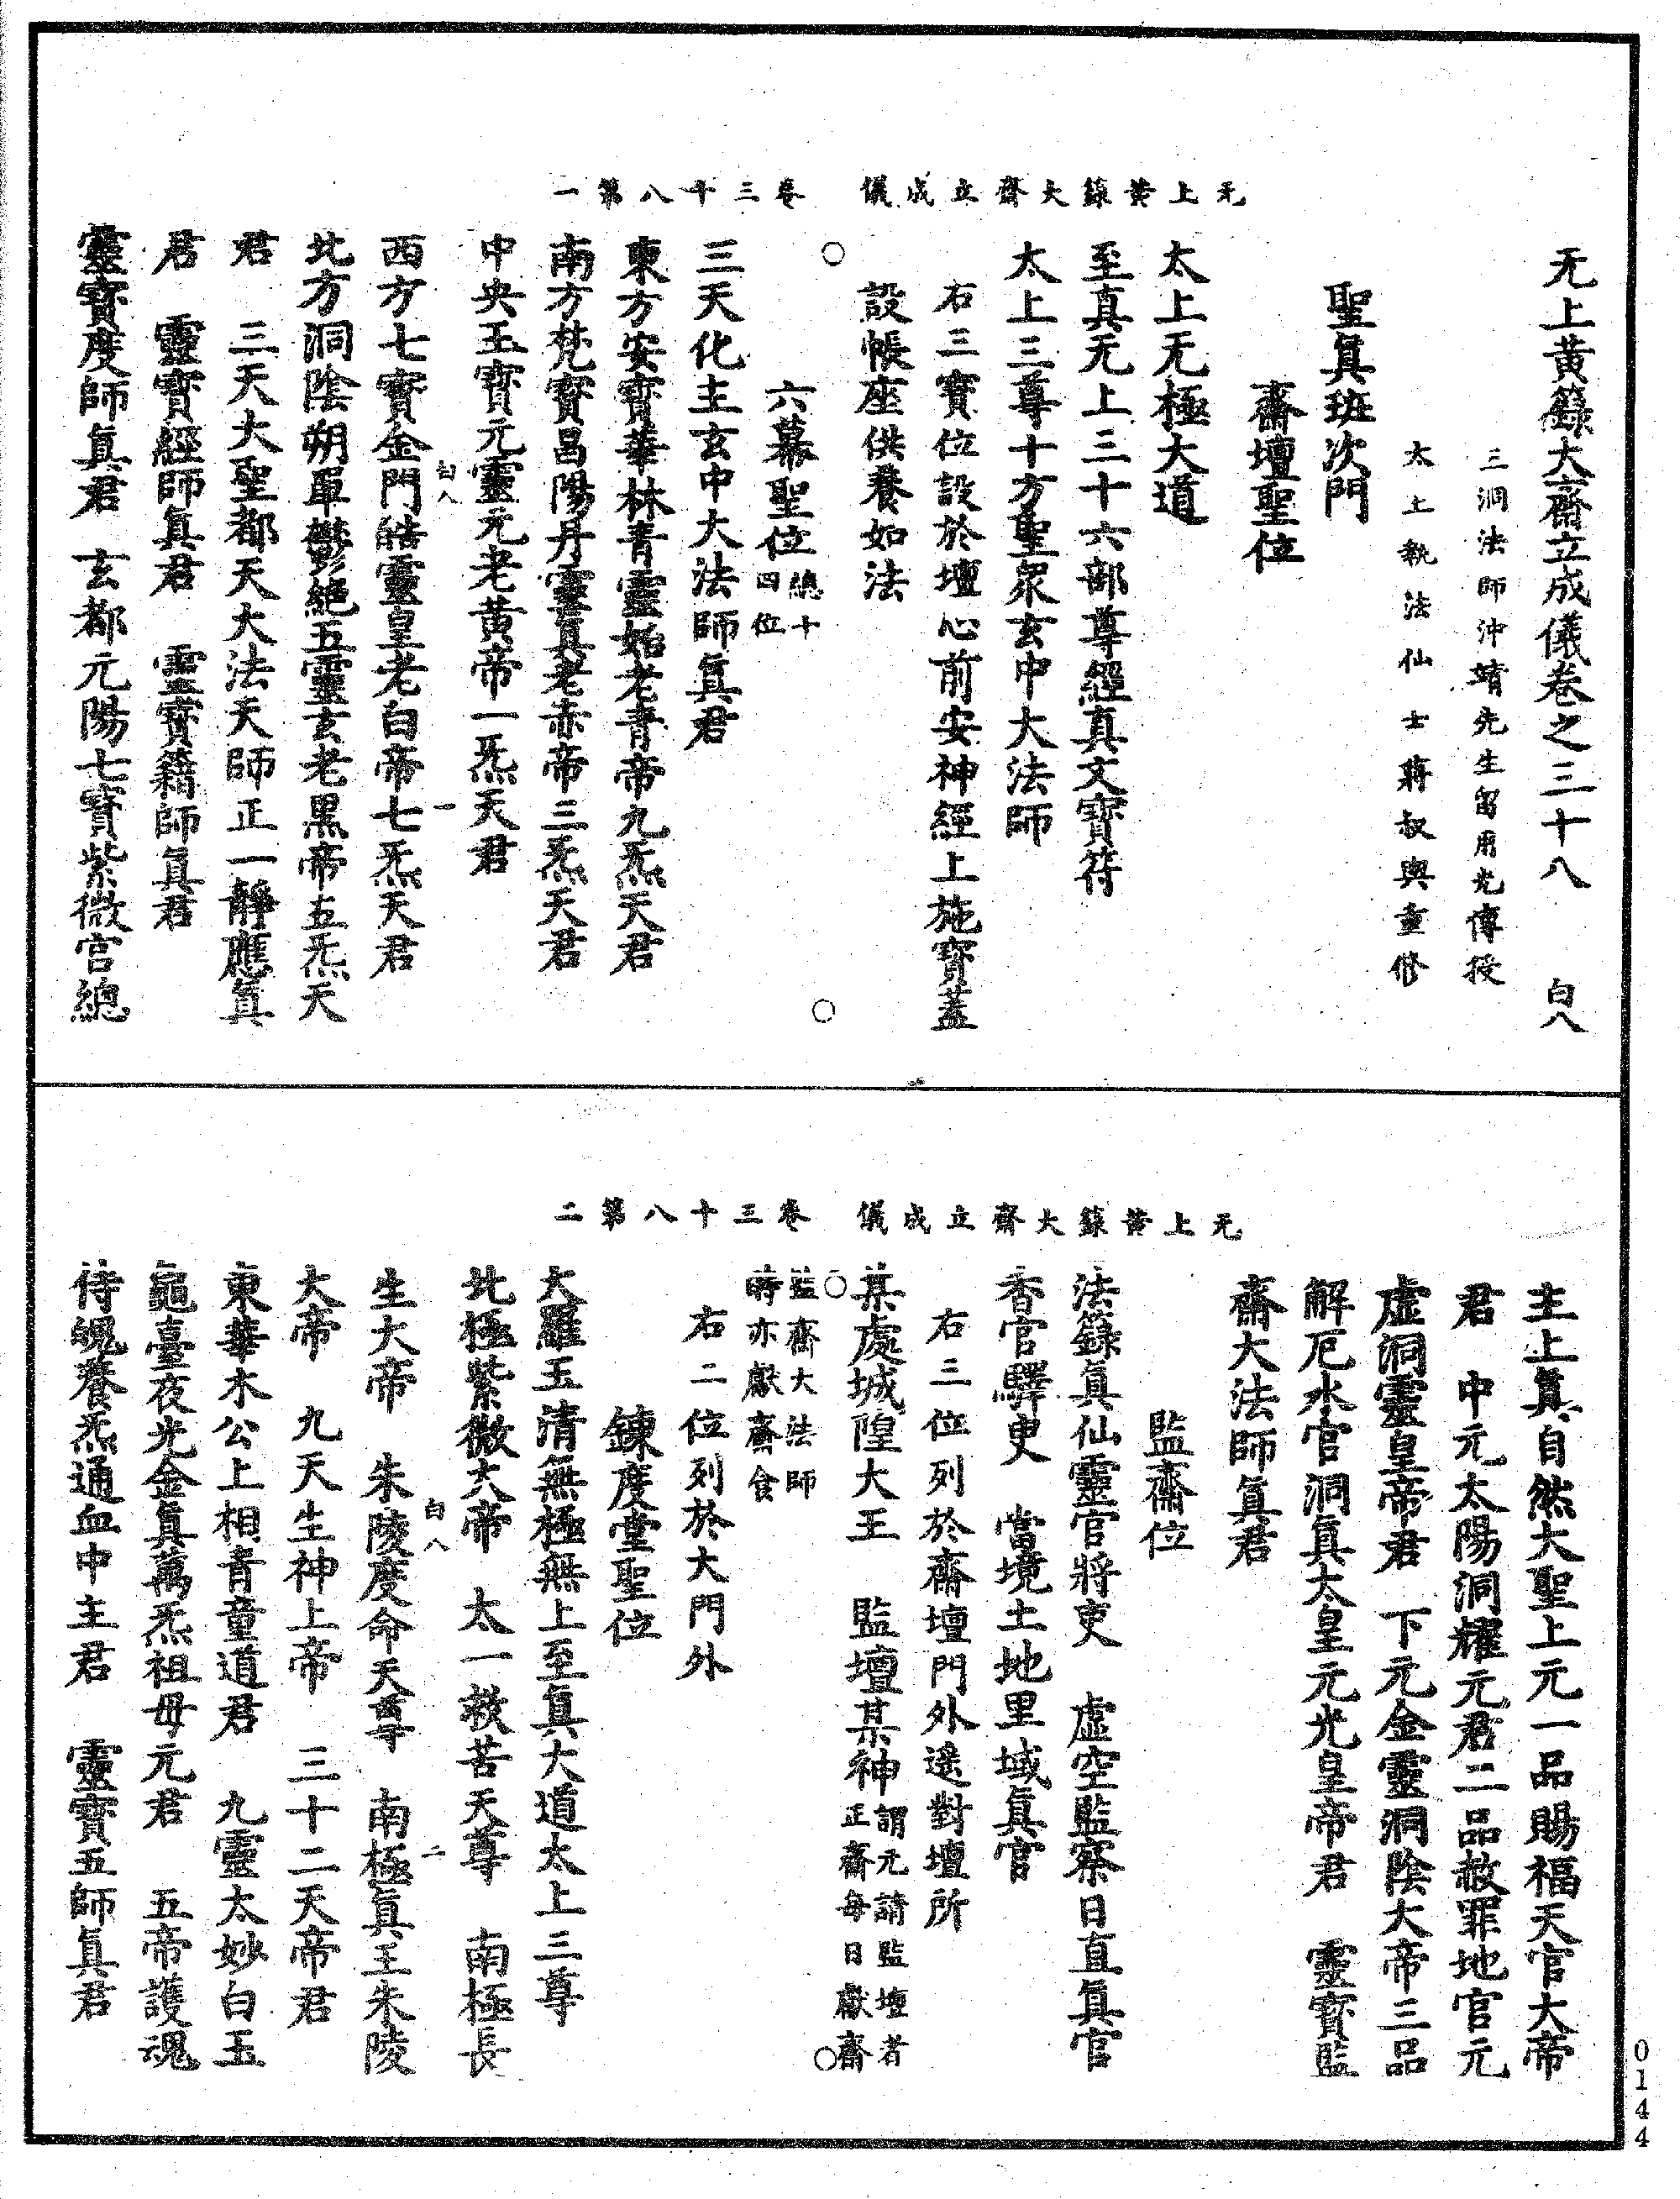 无上黃籙大齋立成儀　卷三十八第一
无上黃籙大齋立成儀卷之三十八　白八
三洞法師沖靖先生留用光傳授
太上執法仙士蔣叔輿重修
聖眞班次門
齋壇聖位
太上无極大道
至真无上三十六部尊經真文寶符
太上三尊十方聖眾玄中大法師
右三寶位設於壇心前安神經上施寶蓋
設帳座供養如法
六幕聖位總十四位
三天化主玄中大法師眞君
東方安寶華林青靈始老青帝九炁天君
南方梵寶昌陽丹靈真老赤帝三炁天君
中央玉寶元靈元老黃帝一炁天君
白八　一
西方七寶金門皓靈皇老白帝七炁天君
北方洞陰朔單鬱絕五靈玄老黑帝五炁天
君　三天大聖都天大法天師正一靜應眞
君　靈寶經師眞君　靈寶籍師眞君
靈寶度師眞君　玄都元陽七寶紫微宮總
无上黃籙大齋立成儀　卷三十八第二
主上眞自然大聖上元一品賜福天官大帝
君　中元太陽洞耀元君二品赦罪地官元
虛洞靈皇帝君　下元金靈洞陰大帝三品
解厄水官洞眞太皇元光皇帝君　靈寶監
齋大法師眞君
監齋位
法籙眞仙靈官將吏　虛空監察日直眞官
香官驛吏　當境土地里域眞官
右三位列於齋壇門外遙對壇所
某處城隍大王　監壇某神謂元請監壇者正齋每日獻齋
監齋大法師時亦獻齋食
右二位列於大門外
鍊度堂聖位
大羅玉清無極無上至眞大道太上三尊
北極紫微大帝　太一救苦天尊　南極長
白八　二
生大帝　朱陵度命天尊　南極眞王朱陵
大帝　九天生神上帝　三十二天帝君
東華木公上相青童道君　九靈太妙白玉
龜臺夜光金眞萬炁祖母元君　五帝護魂
侍魄養炁通血中主君　靈寶五師眞君
0144